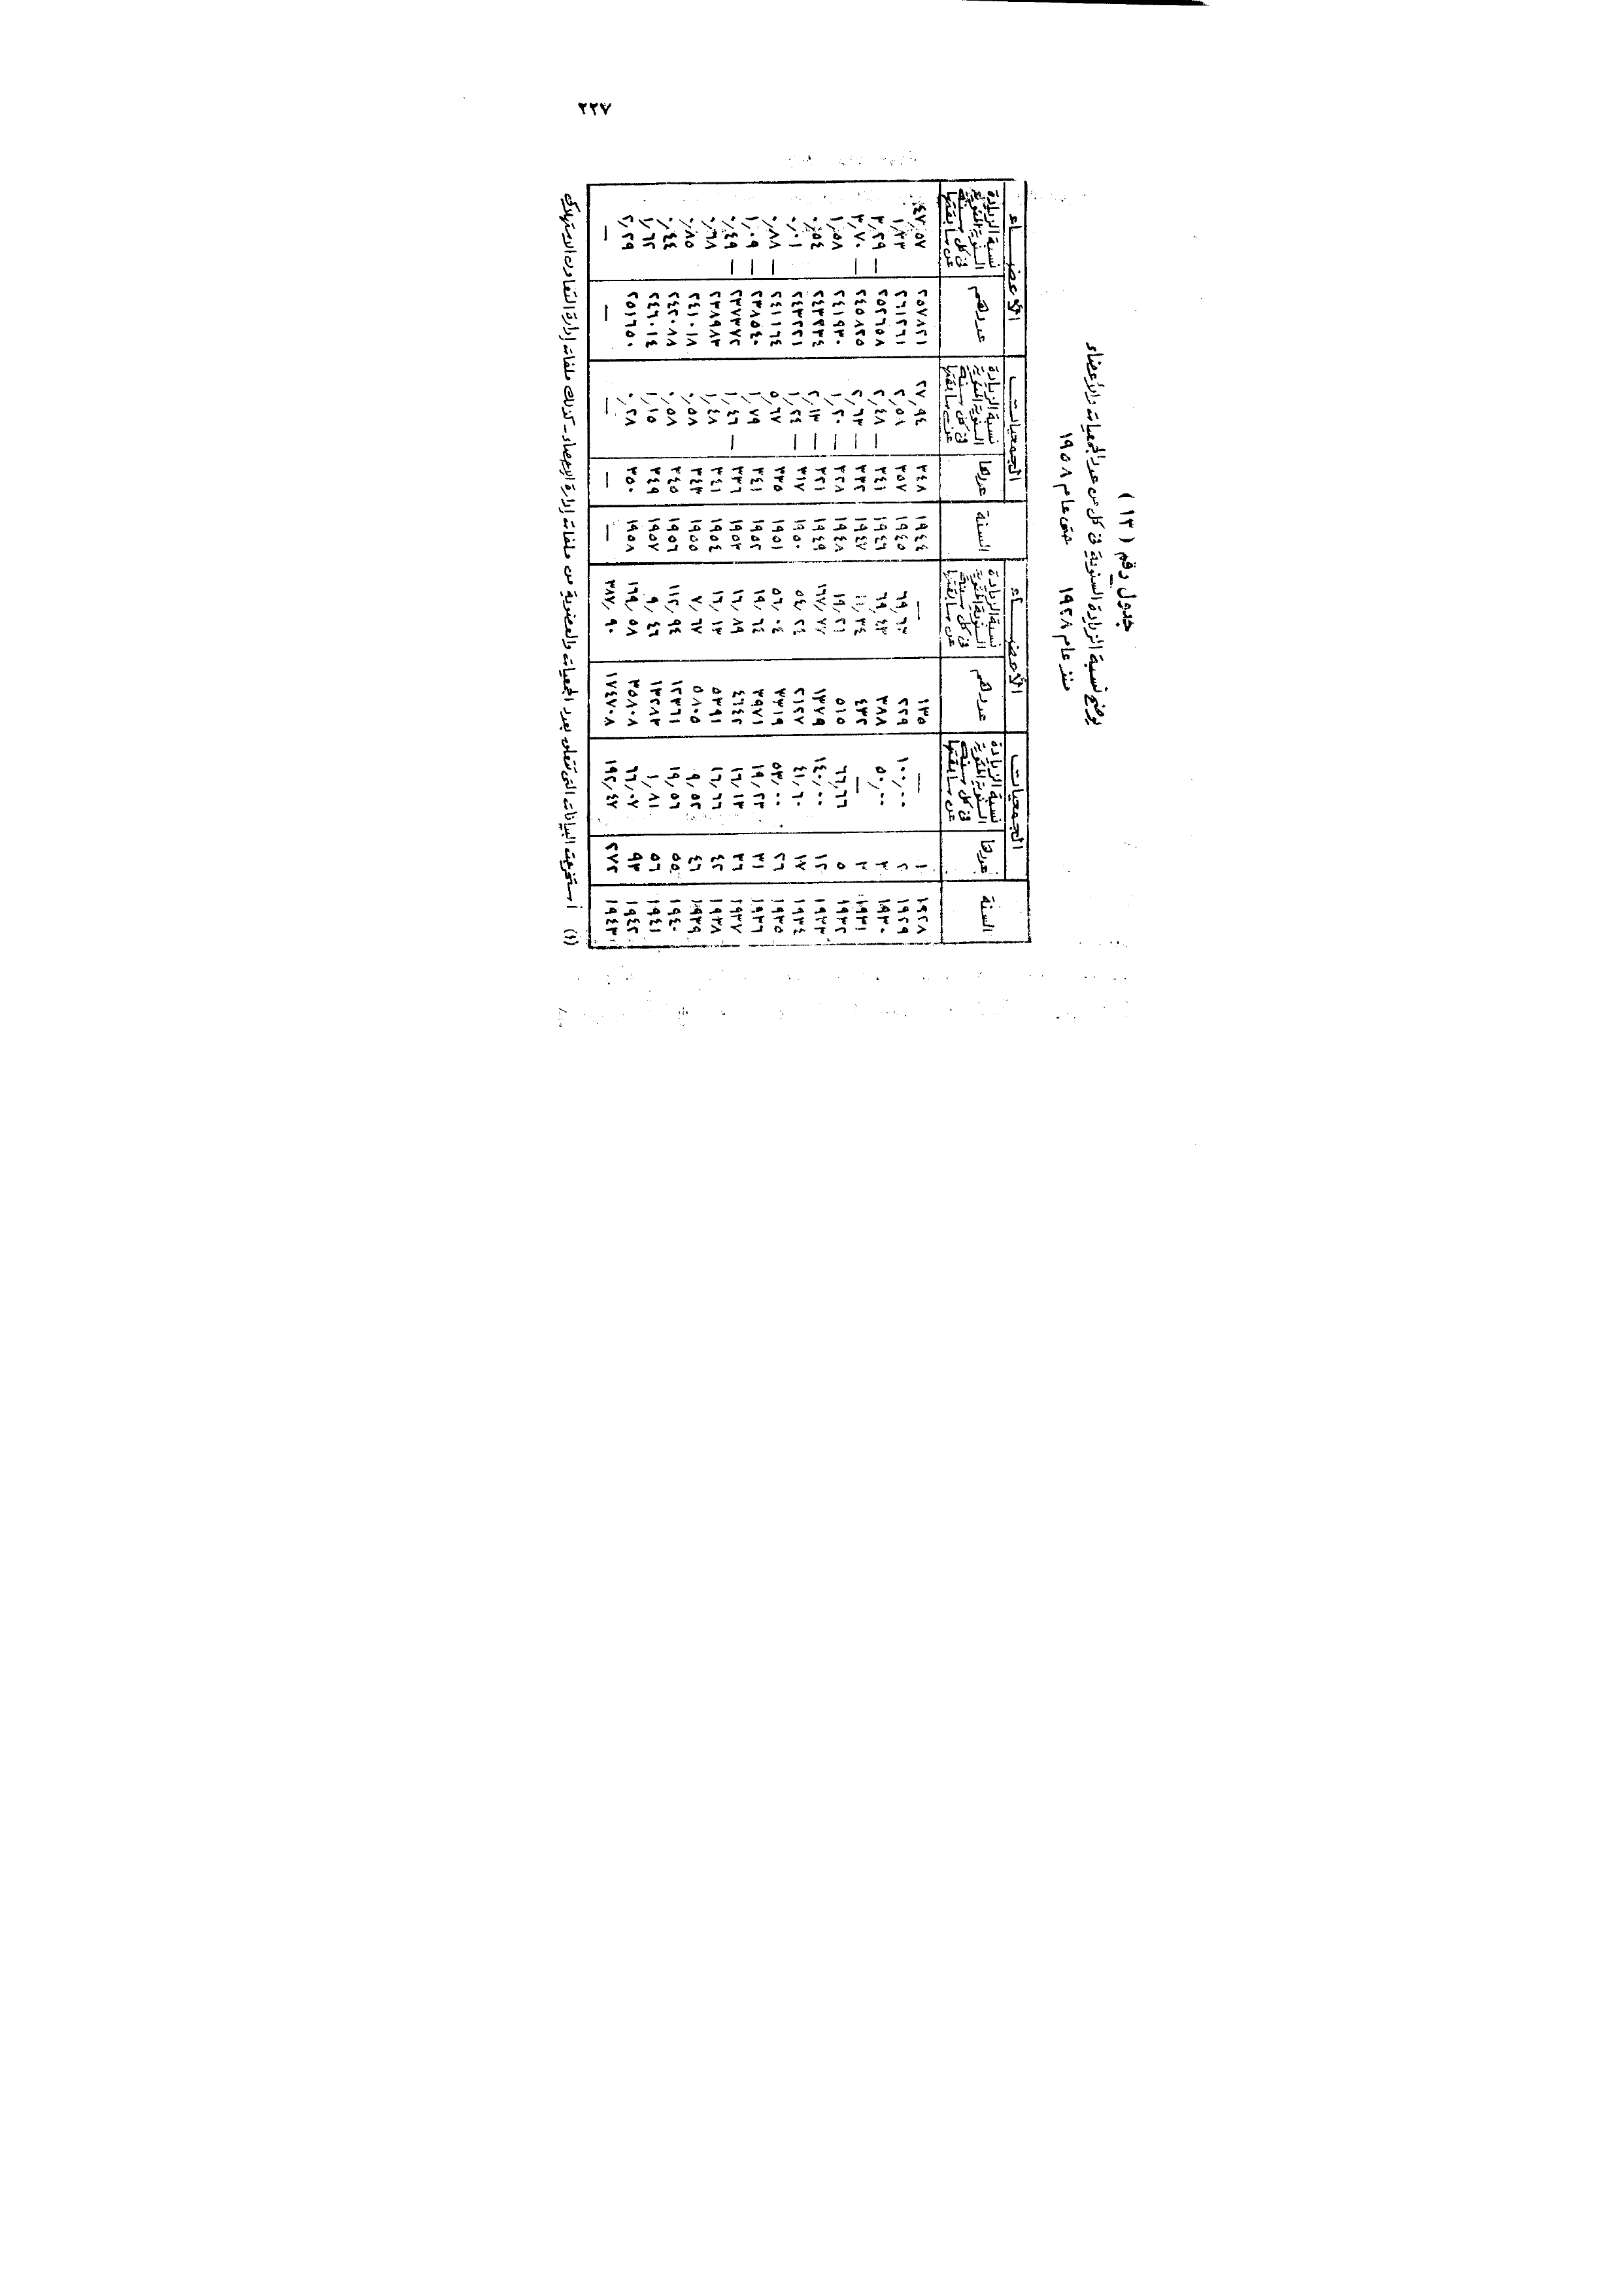 ٢٢٧
جدول رقم (١٣)
يوضح نسبة الزيادة السنوية فى كل من عدد الجمعيات والأعضاء
منذ عام ١٩٢٨ حتى عام ١٩٥٨
السنة الجمعيات الأعضاء السنة الجمعيات الأعضاء
عددها نسبة الزيادة السنوية المئوية فى كل سنة عن سابقتها عددهم نسبة الزيادة السنوية المئوية فى كل سنة عن سابقتها عددها نسبة الزيادة السنوية المئوية فى كل سنة عن سابقتها عددهم نسبة الزيادة السنوية المئوية فى كل سنة عن سابقتها
١٩٢٨ ١ — ١٣٥ — ١٩٤٤ ٣٤٨ ٢٧,٩٤ ٢٥٧٨٢١ ٤٧,٥٧
١٩٢٩ ٢ ١٠٠,٠٠ ٢٢٩ ٦٩,٦٣ ١٩٤٥ ٣٥٧ ٢,٥٨ ٢٦١٢٦١ ١,٣٣
١٩٣٠ ٣ ٥٠,٠٠ ٣٨٨ ٦٩,٤٣ ١٩٤٦ ٣٤١ — ٤,٤٨ ٢٥٢٦٥٨ — ٣,٢٩
١٩٣١ ٣ — ٤٣٢ ١١,٣٤ ١٩٤٧ ٣٣٢ — ٢,٦٣ ٢٤٥٨٢٥ — ٢,٧٠
١٩٣٢ ٥ ٦٦,٦٦ ٥١٥ ١٩,٢١ ١٩٤٨ ٣٢٨ — ١,٢٠ ٢٤١٩٣٠ ١,٥٨
١٩٣٣ ١٢ ١٤٠,٠٠ ١٣٧٩ ١٦٧,٧٧ ١٩٤٩ ٣٢١ — ٢,١٣ ٢٤٣٢٣٤ ٠,٥٤
١٩٣٤ ١٧ ٤١,٦٠ ٢١٢٧ ٥٤,٢٤ ١٩٥٠ ٣١٧ — ١,٢٤ ٢٤٣٢٢١ ٠,٠١
١٩٣٥ ٢٦ ٥٣,٠٠ ٣٣١٩ ٥٦,٠٤ ١٩٥١ ٣٣٥ ٥,٦٧ ٢٤١١٦٤ — ٠,٨٨
١٩٣٦ ٣١ ١٩,٢٣ ٣٩٧١ ١٩,٦٤ ١٩٥٢ ٣٤١ ١,٧٩ ٢٣٨٥٤٠ — ١,٠٩
١٩٣٧ ٣٦ ١٦,١٣ ٤٦٤٢ ١٦,٨٩ ١٩٥٣ ٣٣٦ — ١,٤٦ ٢٣٧٣٧٢ — ٠,٤٩
١٩٣٨ ٤٢ ١٦,٦٦ ٥٣٩١ ١٦,١٣ ١٩٥٤ ٣٤١ ١,٤٨ ٢٣٨٩٨٣ ٠,٦٨
١٩٣٩ ٤٦ ٩,٥٢ ٥٨٠٥ ٧,٦٧ ١٩٥٥ ٣٤٣ ٠,٥٨ ٢٤١٠١٨ ٠,٨٥
١٩٤٠ ٥٥ ١٩,٥٦ ١٢٣٦١ ١١٢,٩٤ ١٩٥٦ ٣٤٥ ٠,٥٨ ٢٤٢٠٨٨ ٠,٤٤
١٩٤١ ٥٦ ١,٨١ ١٣٢٨٣ ٩,٤٦ ١٩٥٧ ٣٤٩ ١,١٥ ٢٤٦٠١٤ ١,٦٢
١٩٤٢ ٩٣ ٦٦,٠٧ ٣٥٨٠٨ ١٦٩,٥٨ ١٩٥٨ ٣٥٠ ٠,٢٨ ٢٥١٦٥٠ ٢,٢٩
١٩٤٣ ٢٧٢ ١٩٢,٤٧ ١٧٤٧٠٨ ٣٨٧,٩٠ — — — — —
(١) استخرجت البيانات التى تتعلق بعدد الجمعيات والعضوية من ملفات إدارة الإحصاء - كذلك ملفات إدارة التعاون الاستهلاكى